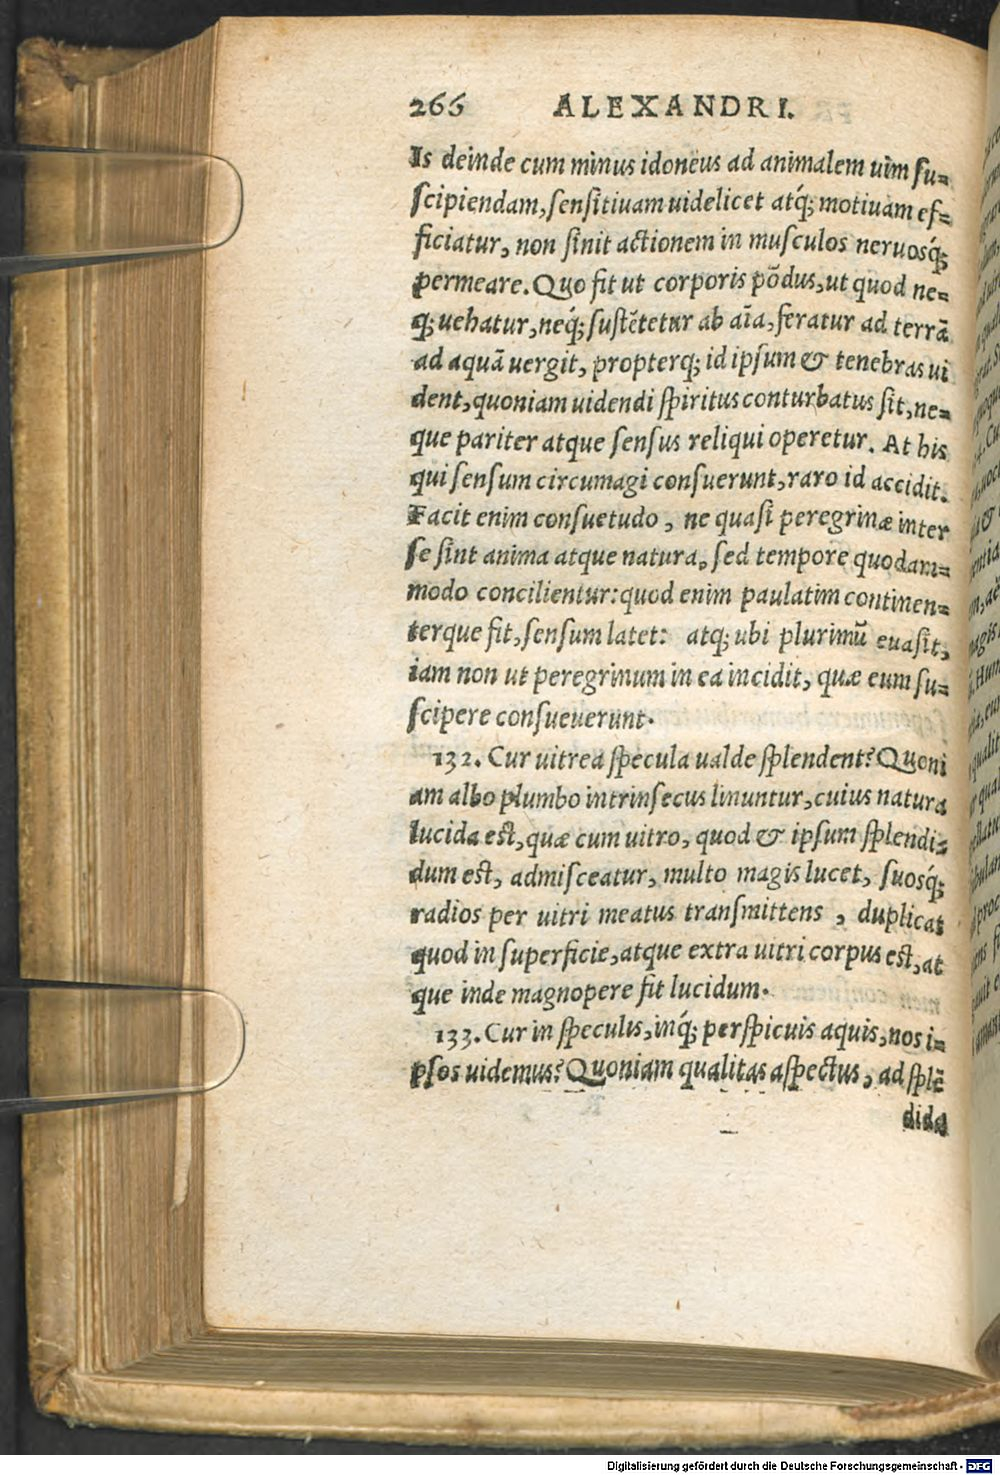 266 ALEXANDRI.
Is deinde cum minus idoneus ad animalem uim su=
scipiendam, sensitiuam uidelicet atq́; motiuam ef=
ficiatur, non sinit actionem in musculos neruosq́;
permeare. Quo fit ut corporis põdus, ut quod ne=
q; uehatur, neq́; sustẽtetur ab aĩa, feratur ad terrã
ad aquã uergit, propterq; id ipsum & tenebras ui
dent, quoniam uidendi spiritus conturbatus sit, ne=
que pariter atque sensus reliqui operetur. At his
qui sensum circumagi consuerunt, raro id accidit.
Facit enim consuetudo, ne quasi peregrinæ inter
se sint anima atque natura, sed tempore quodam=
modo concilientur: quod enim paulatim continen=
terque fit, sensum latet: atq; ubi plurimũ euasit,
iam non ut peregrinum in ea incidit, quæ eum su=
scipere consueuerunt.
132. Cur uitrea specula ualde splendent? Quoni
am albo plumbo intrinsecus linuntur, cuius natura
lucida est, quæ cum uitro, quod & ipsum splendi=
dum est, admisceatur, multo magis lucet, suosq́;
radios per uitri meatus transmittens, duplicat
quod in superficie, atque extra uitri corpus est, at
que inde magnopere fit lucidum.
133. Cur in speculis, inq́; perspicuis aquis, nos i=
psos uidemus? Quoniam qualitas aspectus, ad splẽ
dida
Digitalisierung gefördert durch die Deutsche Forschungsgemeinschaft - DFG